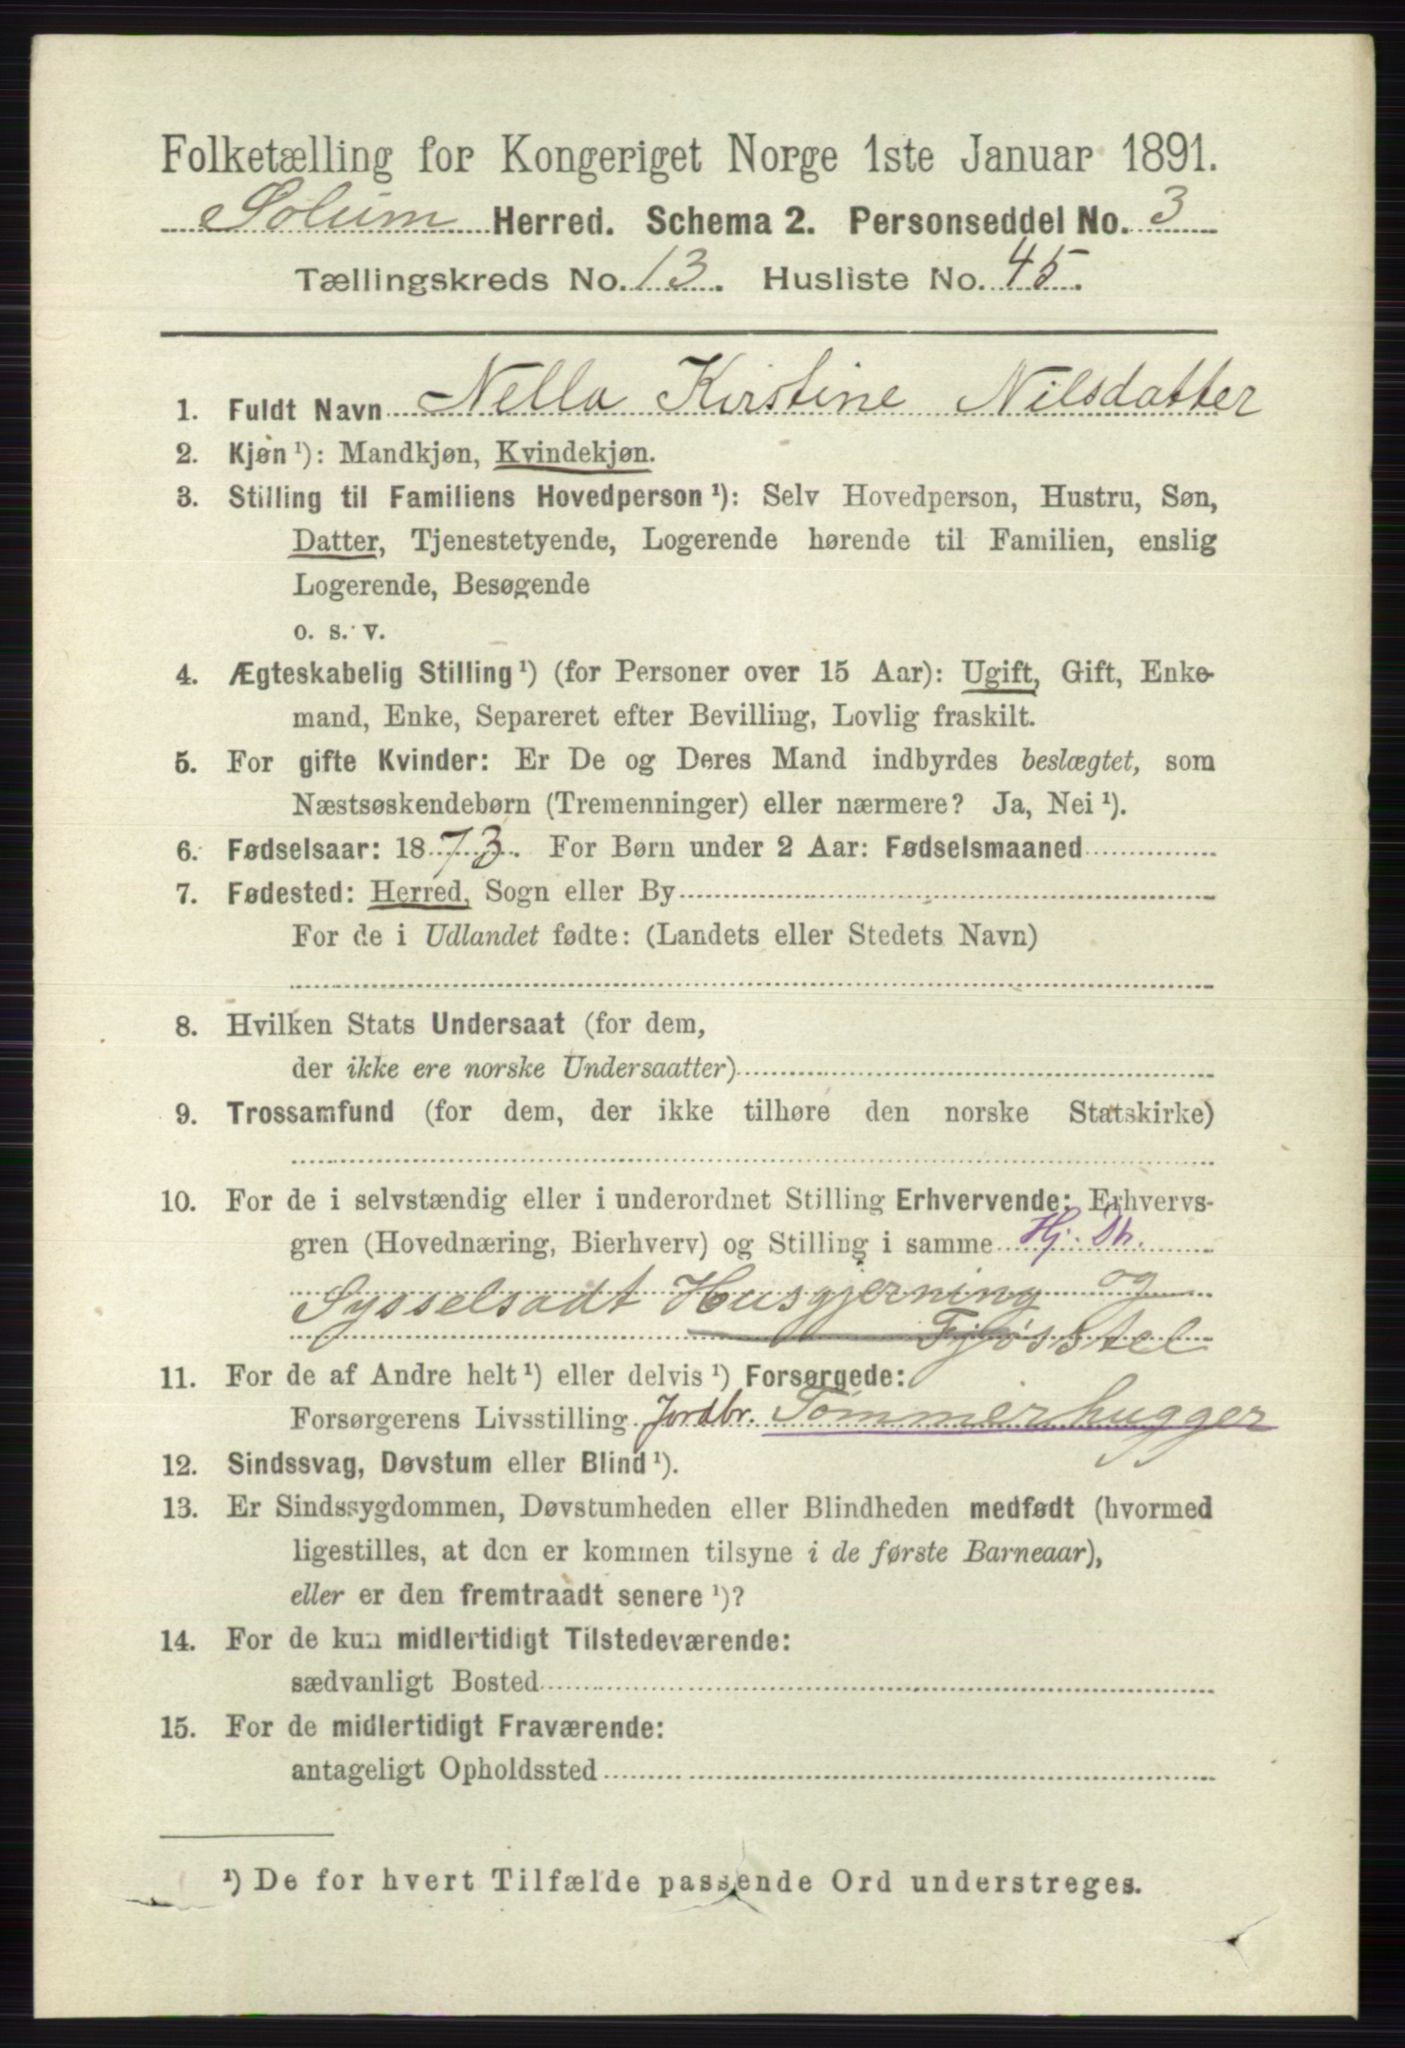 Folketælling for Kongeriget Norge 1ste Januar 1891.
Solum Herred. Schema 2. Personseddel No. 3
Tællingskreds No. 13. Husliste No. 45.
1. Fuldt Navn Nella Kirstine Nilsdatter
2. Kjøn ¹): Mandkjøn, Kvindekjøn.
3. Stilling til Familiens Hovedperson ¹): Selv Hovedperson, Hustru, Søn,
Datter, Tjenestetyende, Logerende hørende til Familien, enslig
Logerende, Besøgende
o. s. v.
4. Ægteskabelig Stilling ¹) (for Personer over 15 Aar): Ugift, Gift, Enke-
mand, Enke, Separeret efter Bevilling, Lovlig fraskilt.
5. For gifte Kvinder: Er De og Deres Mand indbyrdes beslægtet, som
Næstsøskendebørn (Tremenninger) eller nærmere? Ja, Nei ¹).
6. Fødselsaar: 1873. For Børn under 2 Aar: Fødselsmaaned
7. Fødested: Herred, Sogn eller By
For de i Udlandet fødte: (Landets eller Stedets Navn)
8. Hvilken Stats Undersaat (for dem,
der ikke ere norske Undersaatter)
9. Trossamfund (for dem, der ikke tilhøre den norske Statskirke)
10. For de i selvstændig eller i underordnet Stilling Erhvervende: Erhvervs-
gren (Hovednæring, Bierhverv) og Stilling i samme Hj. Dh.
Sysselsadt Husgjerning og
Fjösstel
11. For de af Andre helt ¹) eller delvis ¹) Forsørgede:
Forsørgerens Livsstilling Jordbr. Tømmerhugger
12. Sindssvag, Døvstum eller Blind ¹).
13. Er Sindssygdommen, Døvstumheden eller Blindheden medfødt (hvormed
ligestilles, at den er kommen tilsyne i de første Barneaar),
eller er den fremtraadt senere ¹)?
14. For de kun midlertidigt Tilstedeværende:
sædvanligt Bosted
15. For de midlertidigt Fraværende:
antageligt Opholdssted
¹) De for hvert Tilfælde passende Ord understreges.